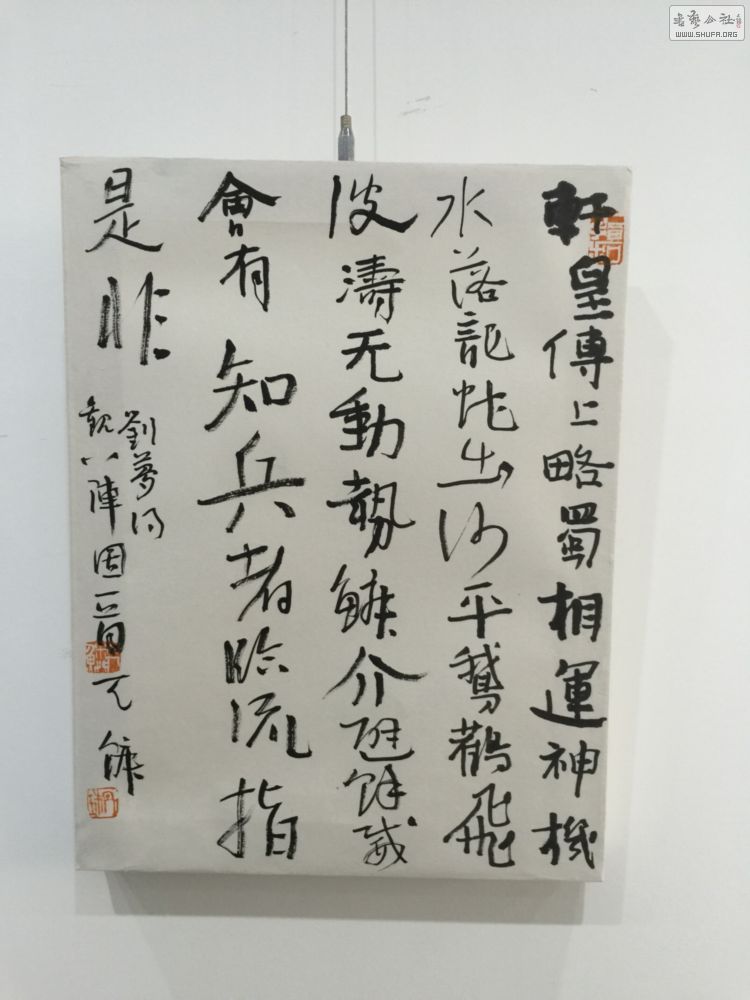 軒皇傳上略蜀相運神機
水落龍蛇出沙平鵝鸛飛
波濤无動勢鱗介避餘威
會有知兵者臨流指
是非
劉夢得
觀八陣图
書藝公社
WWW.SHUFA.ORG